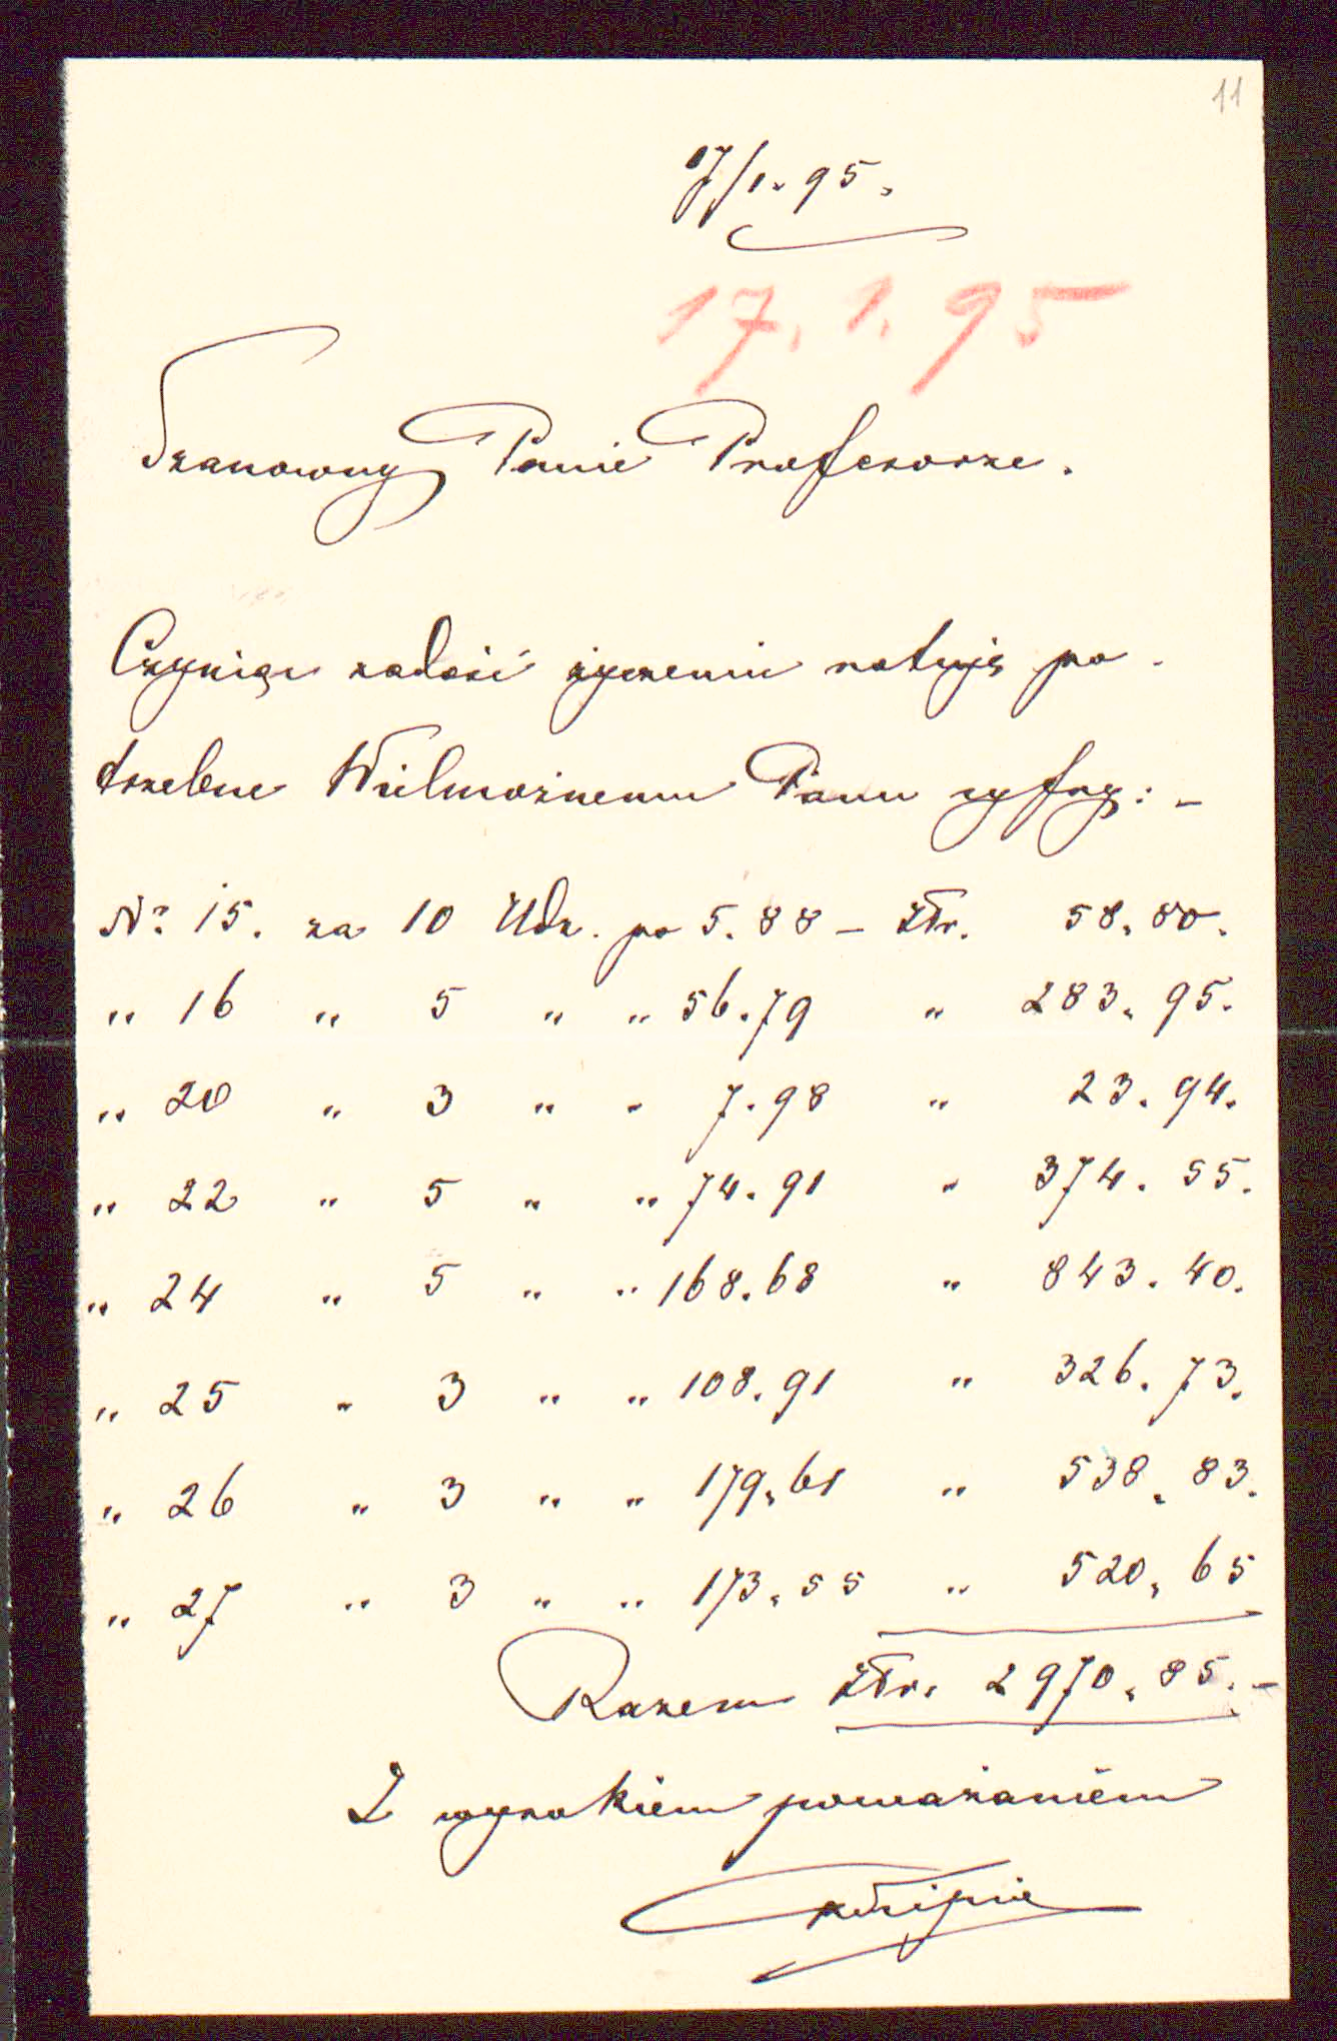 11
17/1. 95.
17. 1. 95
Szanowny Panie Profesorze.
Czyniąc zadość życzeniu notuję po-
trzebne Wielmożnemu Panu cyfry: -
No. 15. za 10 Udz. po 5.88 - Złr. 58.80.
" 16 " 5 " " 56.79 " 283.95.
" 20 " 3 " " 7.98 " 23.94.
" 22 " 5 " " 74.91 " 374.55.
" 24 " 5 " " 168.68 " 843.40.
" 25 " 3 " " 108.91 " 326.73.
" 26 " 3 " " 179.61 " 538.83.
" 27 " 3 " " 173.55 " 520.65
Razem Złr. 2970.85.-
Z wysokiem poważaniem